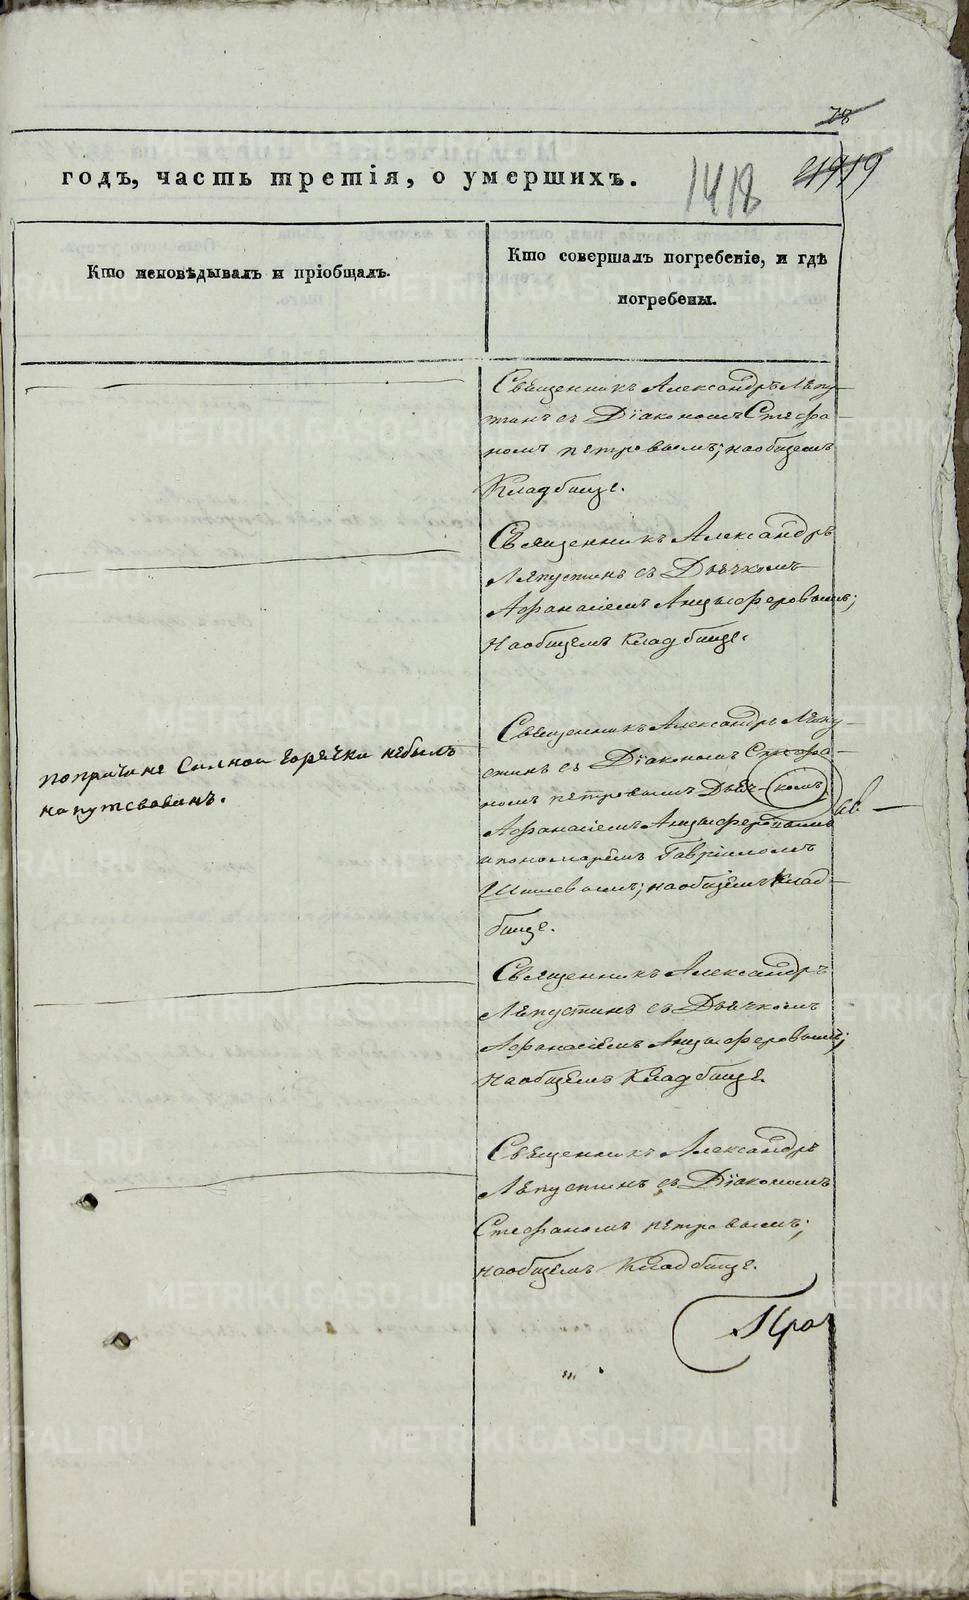 78
годъ, часть третія, о умершихъ.
1418
Кто исповѣдывалъ и пріобщалъ.
Кто совершалъ погребеніе, и гдѣ
погребены.
Священникъ Александръ Ляпу-
стинъ съ Дїакономъ Стефа-
номъ петровымъ; наобщемъ
Кладбище.
Священникъ Александръ
Ляпустинъ съ Дьячкомъ
Афанасіемъ Анцыферовымъ;
Наобщемъ кладбище.
попричине Силной горячки небылъ
напутсвованъ.
Священникъ Александръ Ляпу-
стинъ съ Дїакономъ Стефа-
номъ петровымъ Дьяч-комъ
Афанасіемъ Анцыферовымъ
ипономаремъ Гаврїиломъ
Шишевымъ; наобщемъ Клад-
бище.
Священникъ Александръ
Ляпустинъ съ Дьячкомъ
Афанасіемъ Анцыферовымъ;
Наобщемъ Кладбище.
Священникъ Александръ
Ляпустинъ съ Дїакономъ
Стефаномъ петровымъ;
наобщемъ Кладбище.
METRIKI.GASO-URAL.RU